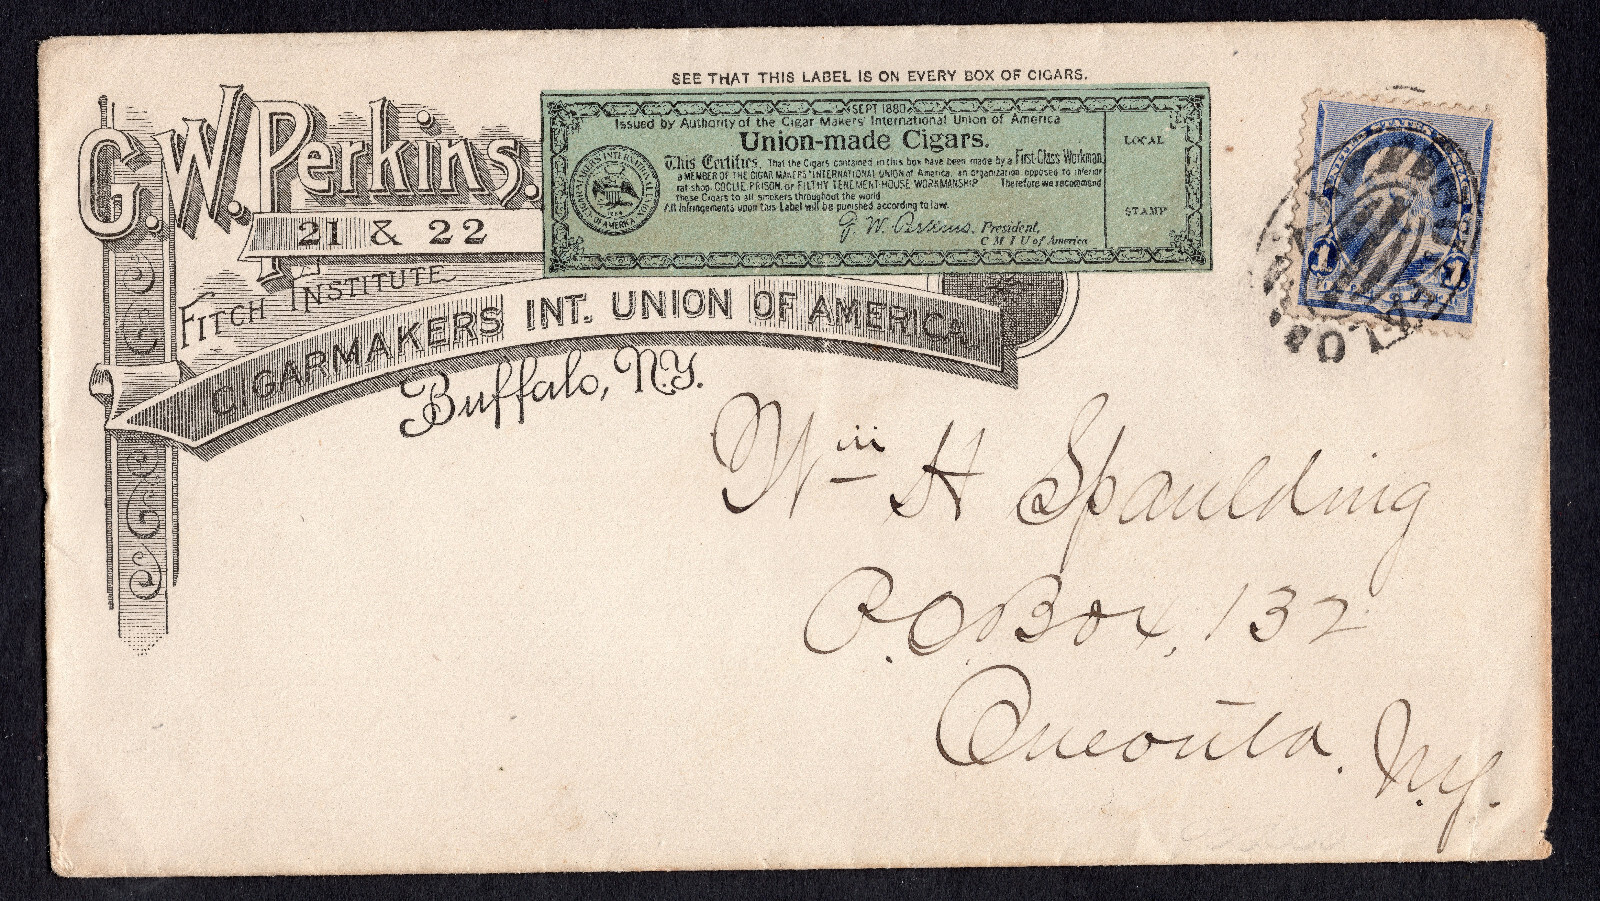 SEE THAT THIS LABEL IS ON EVERY BOX OF CIGARS.
G.W. Perkins.
21 & 22
FITCH INSTITUTE
CIGARMAKERS INT. UNION OF AMERICA
Buffalo, N.Y.
SEPT 1880
Issued by Authority of the Cigar Makers' International Union of America
Union-made Cigars.
This Certifies, That the Cigars contained in this box have been made by a First-Class Workman,
a MEMBER OF THE CIGAR MAKERS' INTERNATIONAL UNION of America, an organization opposed to inferior
rat shop, COOLIE, PRISON, or FILTHY TENEMENT-HOUSE WORKMANSHIP Therefore we recommend
these Cigars to all smokers throughout the world
All Infringements upon this Label will be punished according to law.
G. W. Perkins. President,
C M I U of America
LOCAL
STAMP
CIGARMAKERS INTERNATIONAL UNION
OF AMERICA
1 1
Wm H Spaulding
P.O. Box, 132
Oneonta. N.Y.